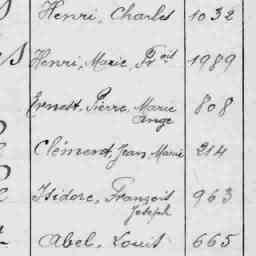 Henri, Charles 1032
Henri, Marie, Fçois 1989
Ernest, Pierre, Marie 808
Ange
Clément, Jean Marie 214
Isidore, François 963
Joseph
Abel, Louis 665